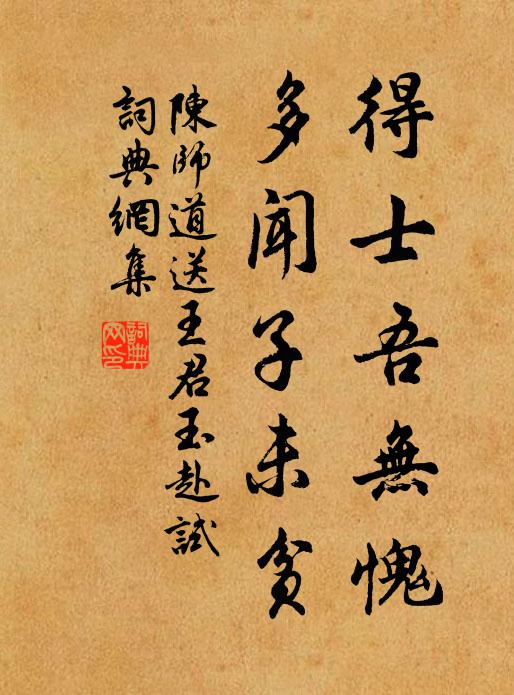 得士吾無愧
多聞子未貧
陳師道送王君玉赴試
詞典網集
詞典網印